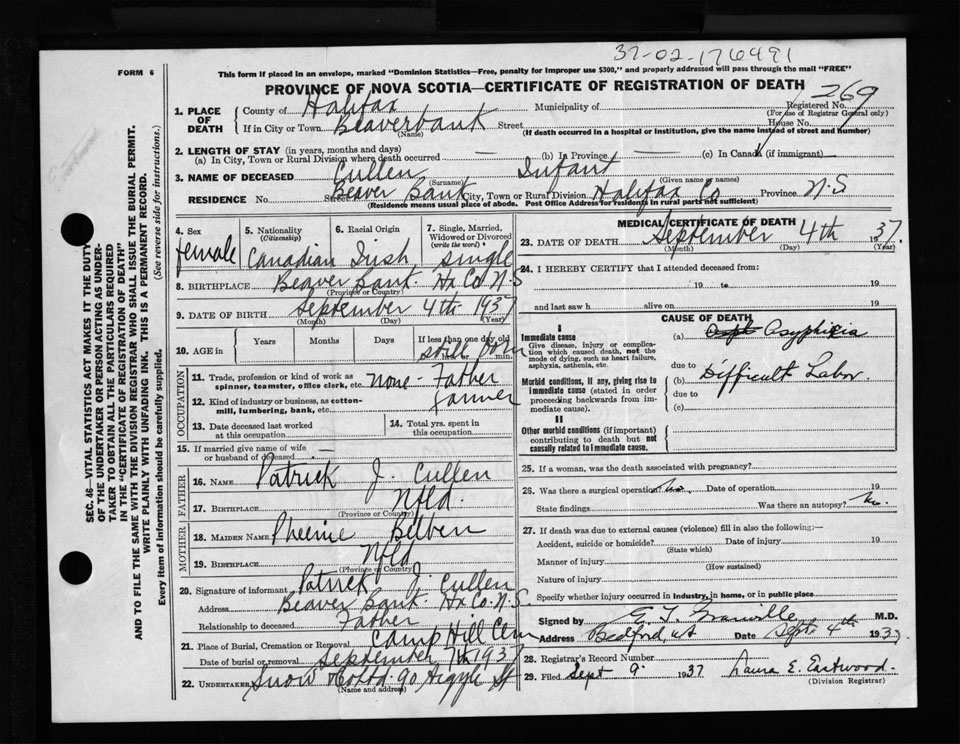 37-02-176491
FORM 6
This form if placed in an envelope, marked "Dominion Statistics—Free, penalty for improper use $300," and properly addressed will pass through the mail "FREE"
PROVINCE OF NOVA SCOTIA—CERTIFICATE OF REGISTRATION OF DEATH
1. PLACE OF DEATH
County of Halifax Municipality of Registered No. 269
(For use of Registrar General only)
If in City or Town Beaverbank Street House No.
(Name) (If death occurred in a hospital or institution, give the name instead of street and number)
2. LENGTH OF STAY (in years, months and days)
(a) In City, Town or Rural Division where death occurred — (b) In Province — (c) In Canada (if immigrant)
3. NAME OF DECEASED Cullen Infant
(Surname) (Given name or names)
RESIDENCE No. Street Beaver Bank City, Town or Rural Division Halifax Co Province N.S
(Residence means usual place of abode. Post Office Address for residents in rural parts not sufficient)
4. Sex female
5. Nationality (Citizenship) Canadian
6. Racial Origin Irish
7. Single, Married, Widowed or Divorced (write the word) single
8. BIRTHPLACE Beaver Bank Hx Co N.S
(Province or Country)
9. DATE OF BIRTH September 4th 1937
(Month) (Day) (Year)
10. AGE in Years Months Days If less than one day old
still born min.
OCCUPATION
11. Trade, profession or kind of work as spinner, teamster, office clerk, etc. none - Father
12. Kind of industry or business, as cotton-mill, lumbering, bank, etc. Farmer
13. Date deceased last worked at this occupation
14. Total yrs. spent in this occupation
15. If married give name of wife or husband of deceased —
FATHER
16. NAME Patrick J. Cullen
17. BIRTHPLACE Nfld.
(Province or Country)
MOTHER
18. MAIDEN NAME
19. BIRTHPLACE Nfld
(Province or Country)
20. Signature of informant Patrick J. Cullen
Address Beaver Bank. Hx Co. N.S.
Relationship to deceased Father
21. Place of Burial, Cremation or Removal Camp Hill Cem
Date of burial or removal September 7th 1937
22. UNDERTAKER Snow & Co Ltd. 90 Argyle St
(Name and address)
MEDICAL CERTIFICATE OF DEATH
23. DATE OF DEATH September 4th 1937.
(Month) (Day) (Year)
24. I HEREBY CERTIFY that I attended deceased from:
19 to 19
and last saw h alive on 19
CAUSE OF DEATH
I
Immediate cause
Give disease, injury or complication which caused death, not the mode of dying, such as heart failure, asphyxia, asthenia, etc.
(a) Asyphixia
due to
Morbid conditions, if any, giving rise to immediate cause (stated in order proceeding backwards from immediate cause).
(b) Difficult Labor
due to
(c)
II
Other morbid conditions (if important) contributing to death but not causally related to immediate cause.
25. If a woman, was the death associated with pregnancy?
26. Was there a surgical operation? no Date of operation 19
State findings Was there an autopsy? no
27. If death was due to external causes (violence) fill in also the following:—
Accident, suicide or homicide? Date of injury 19
(State which)
Manner of injury
(How sustained)
Nature of injury
Specify whether injury occurred in industry, in home, or in public place
Signed by G. T. Granville M.D.
Address Bedford, Date Sept. 4th 1937
28. Registrar's Record Number
29. Filed Sept 9 1937 Laura E. Eastwood.
(Division Registrar)
SEC. 46—VITAL STATISTICS ACT MAKES IT THE DUTY
OF THE UNDERTAKER OR PERSON ACTING AS UNDER-
TAKER TO OBTAIN ALL THE PARTICULARS REQUIRED
IN THE "CERTIFICATE OF REGISTRATION OF DEATH"
AND TO FILE THE SAME WITH THE DIVISION REGISTRAR WHO SHALL ISSUE THE BURIAL PERMIT.
WRITE PLAINLY WITH UNFADING INK. THIS IS A PERMANENT RECORD.
Every item of information should be carefully supplied. (See reverse side for instructions.)